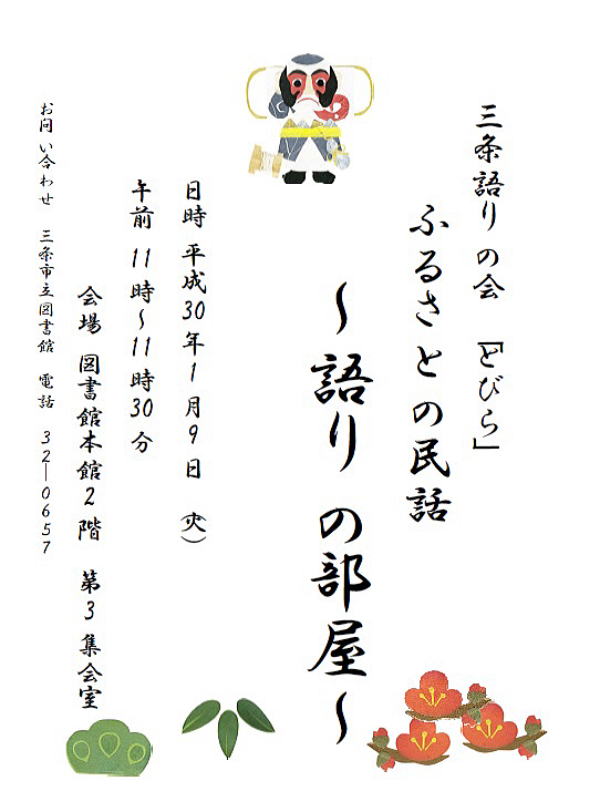 三条語りの会 「とびら」
ふるさとの民話
～語りの部屋～
日時 平成30年1月9日 (火)
午前 11時～11時30分
会場 図書館本館2階 第3集会室
お問い合わせ 三条市立図書館 電話 32―0657